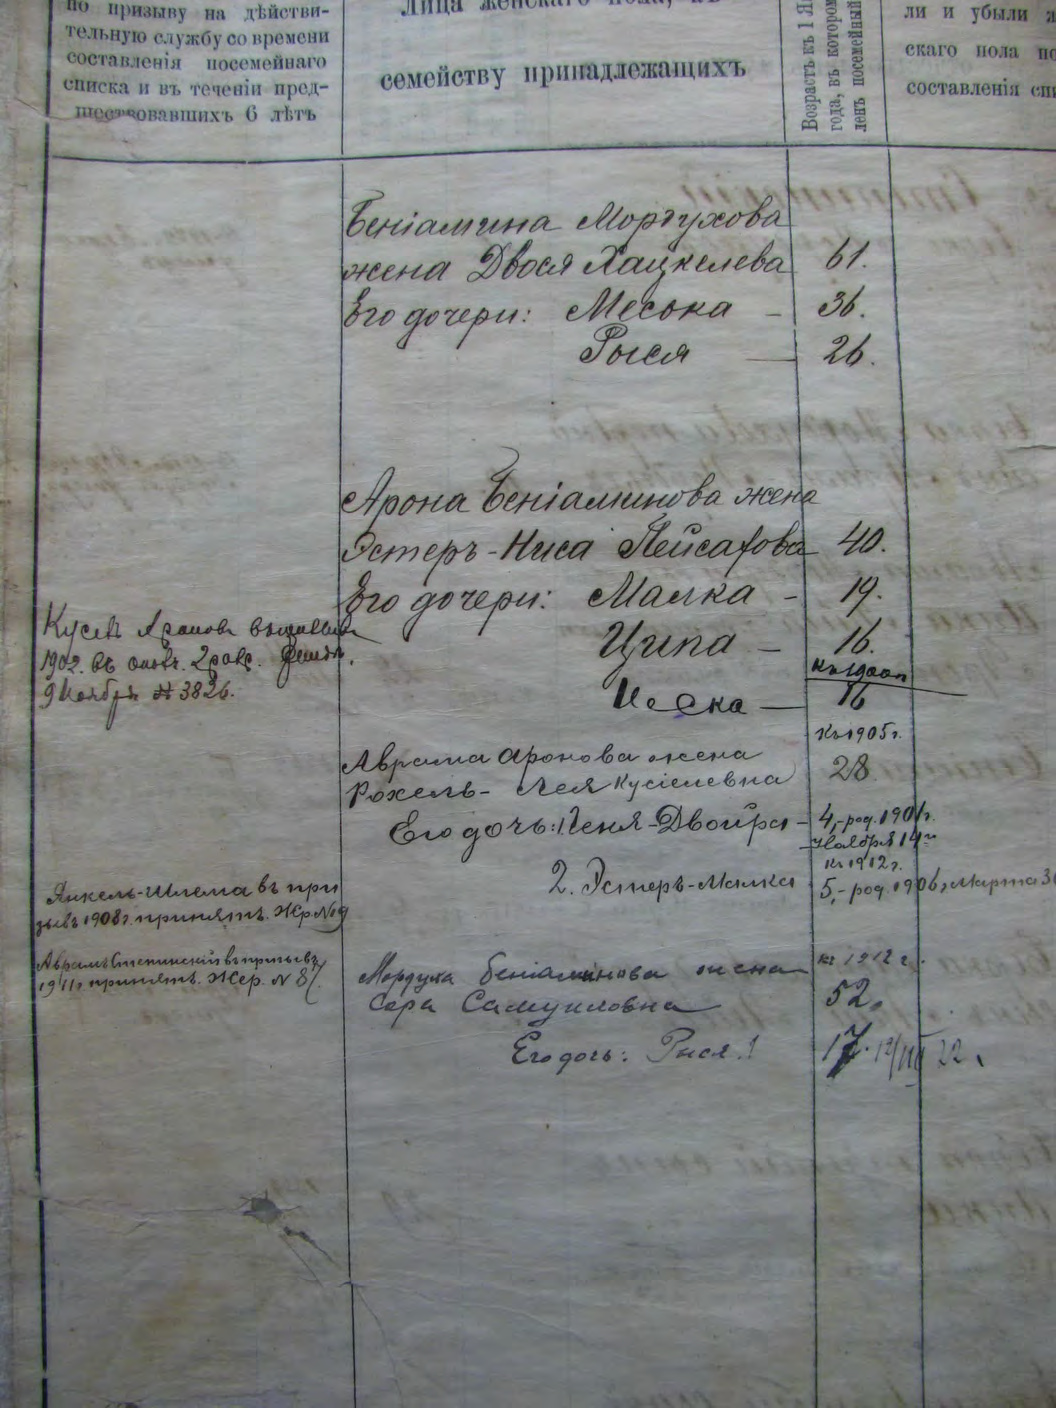 по призыву на дѣйстви-
тельную службу со времени
составленія посемейнаго
списка и въ теченіи пред-
шествовавшихъ 6 лѣтъ
Лица женскаго пола, къ
семейству принадлежащихъ
Возрастъ къ 1 Я
года, въ котором
ленъ посемейный
ли и убыли
скаго пола по
составленія спи
Беніамина Мордухова
жена Двося Хацкелева 61.
Его дочери: Меська — 36.
Рыся — 26.
Арона Беніаминова жена
Эстеръ-Ниса Пейсахова 40.
Его дочери: Малка — 19.
Ципа — 16.
Кусель Аронов
1902. въ
9 Ноября № 3836.
Неска — 16
къ 1905 г.
Аврама Аронова жена
Рохель-Лея Кусіелевна 28.
Его дочь: 1. Геня-Двойра — 4,- род. 1901 г.
Ноября 14 г.
къ 1912 г.
2. Эстеръ-Малка 5,- род. 1906 г. Марта 3
Янкель-Шлема въ при
зывъ 1908 г. принятъ. Жер № 19
Аврамъ въ призывъ
1911 г. принятъ. Жер. № 87.
къ 1912 г.
Мордуха Беніаминова жена
Сора Самуиловна 52.
Его дочь: Рыся. 17. 12/III 22.